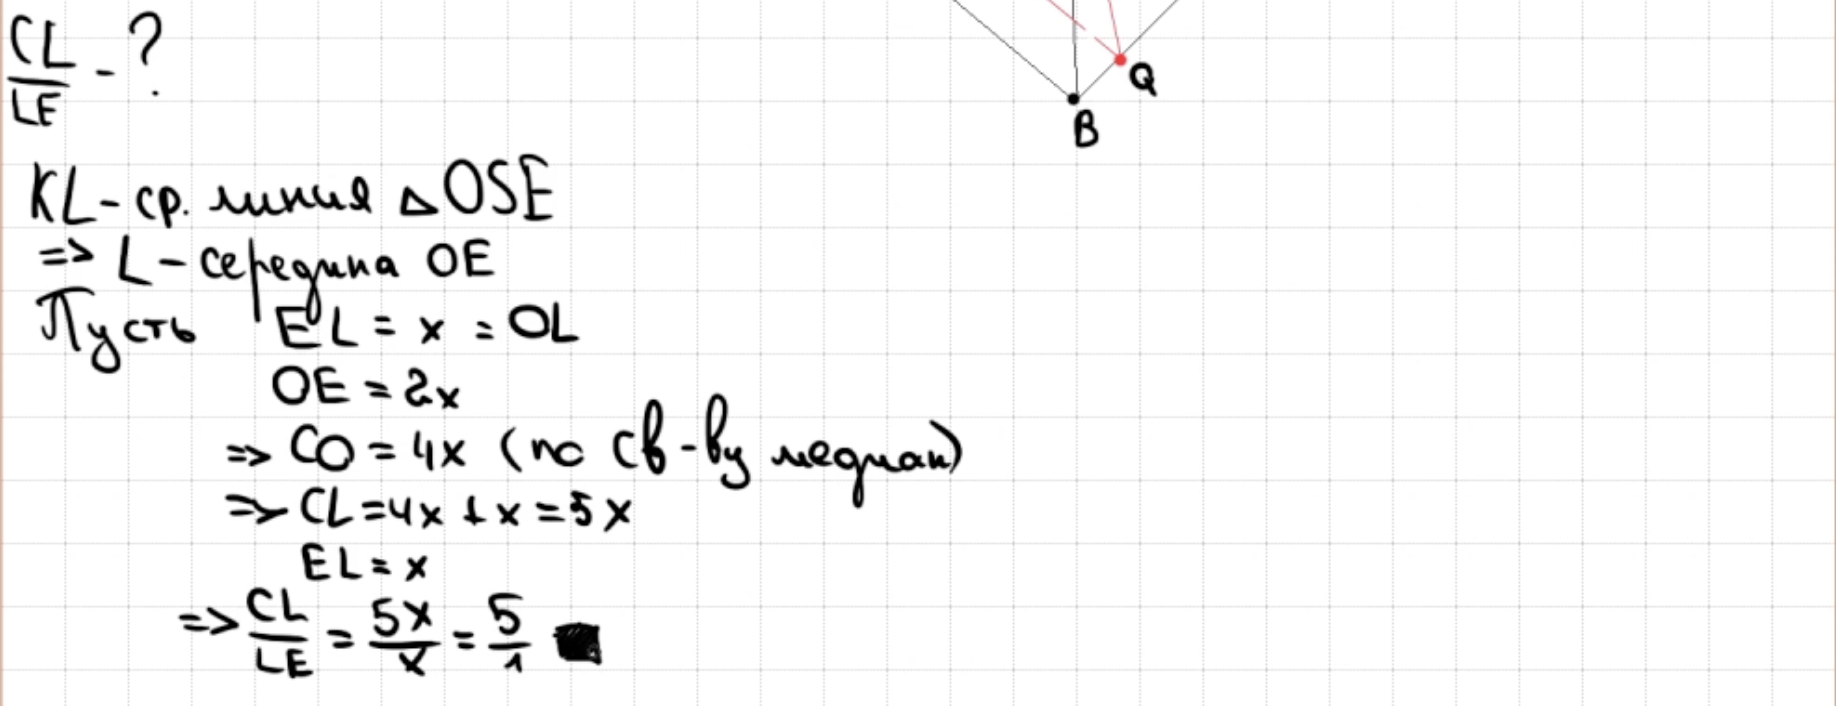 CL/LE - ?
Q
B
KL - ср. линия △OSE
=> L - середина OE
Пусть EL = x = OL
OE = 2x
=> CO = 4x (по св-ву медиан)
=> CL = 4x + x = 5x
EL = x
=> CL/LE = 5x/x = 5/1 ■